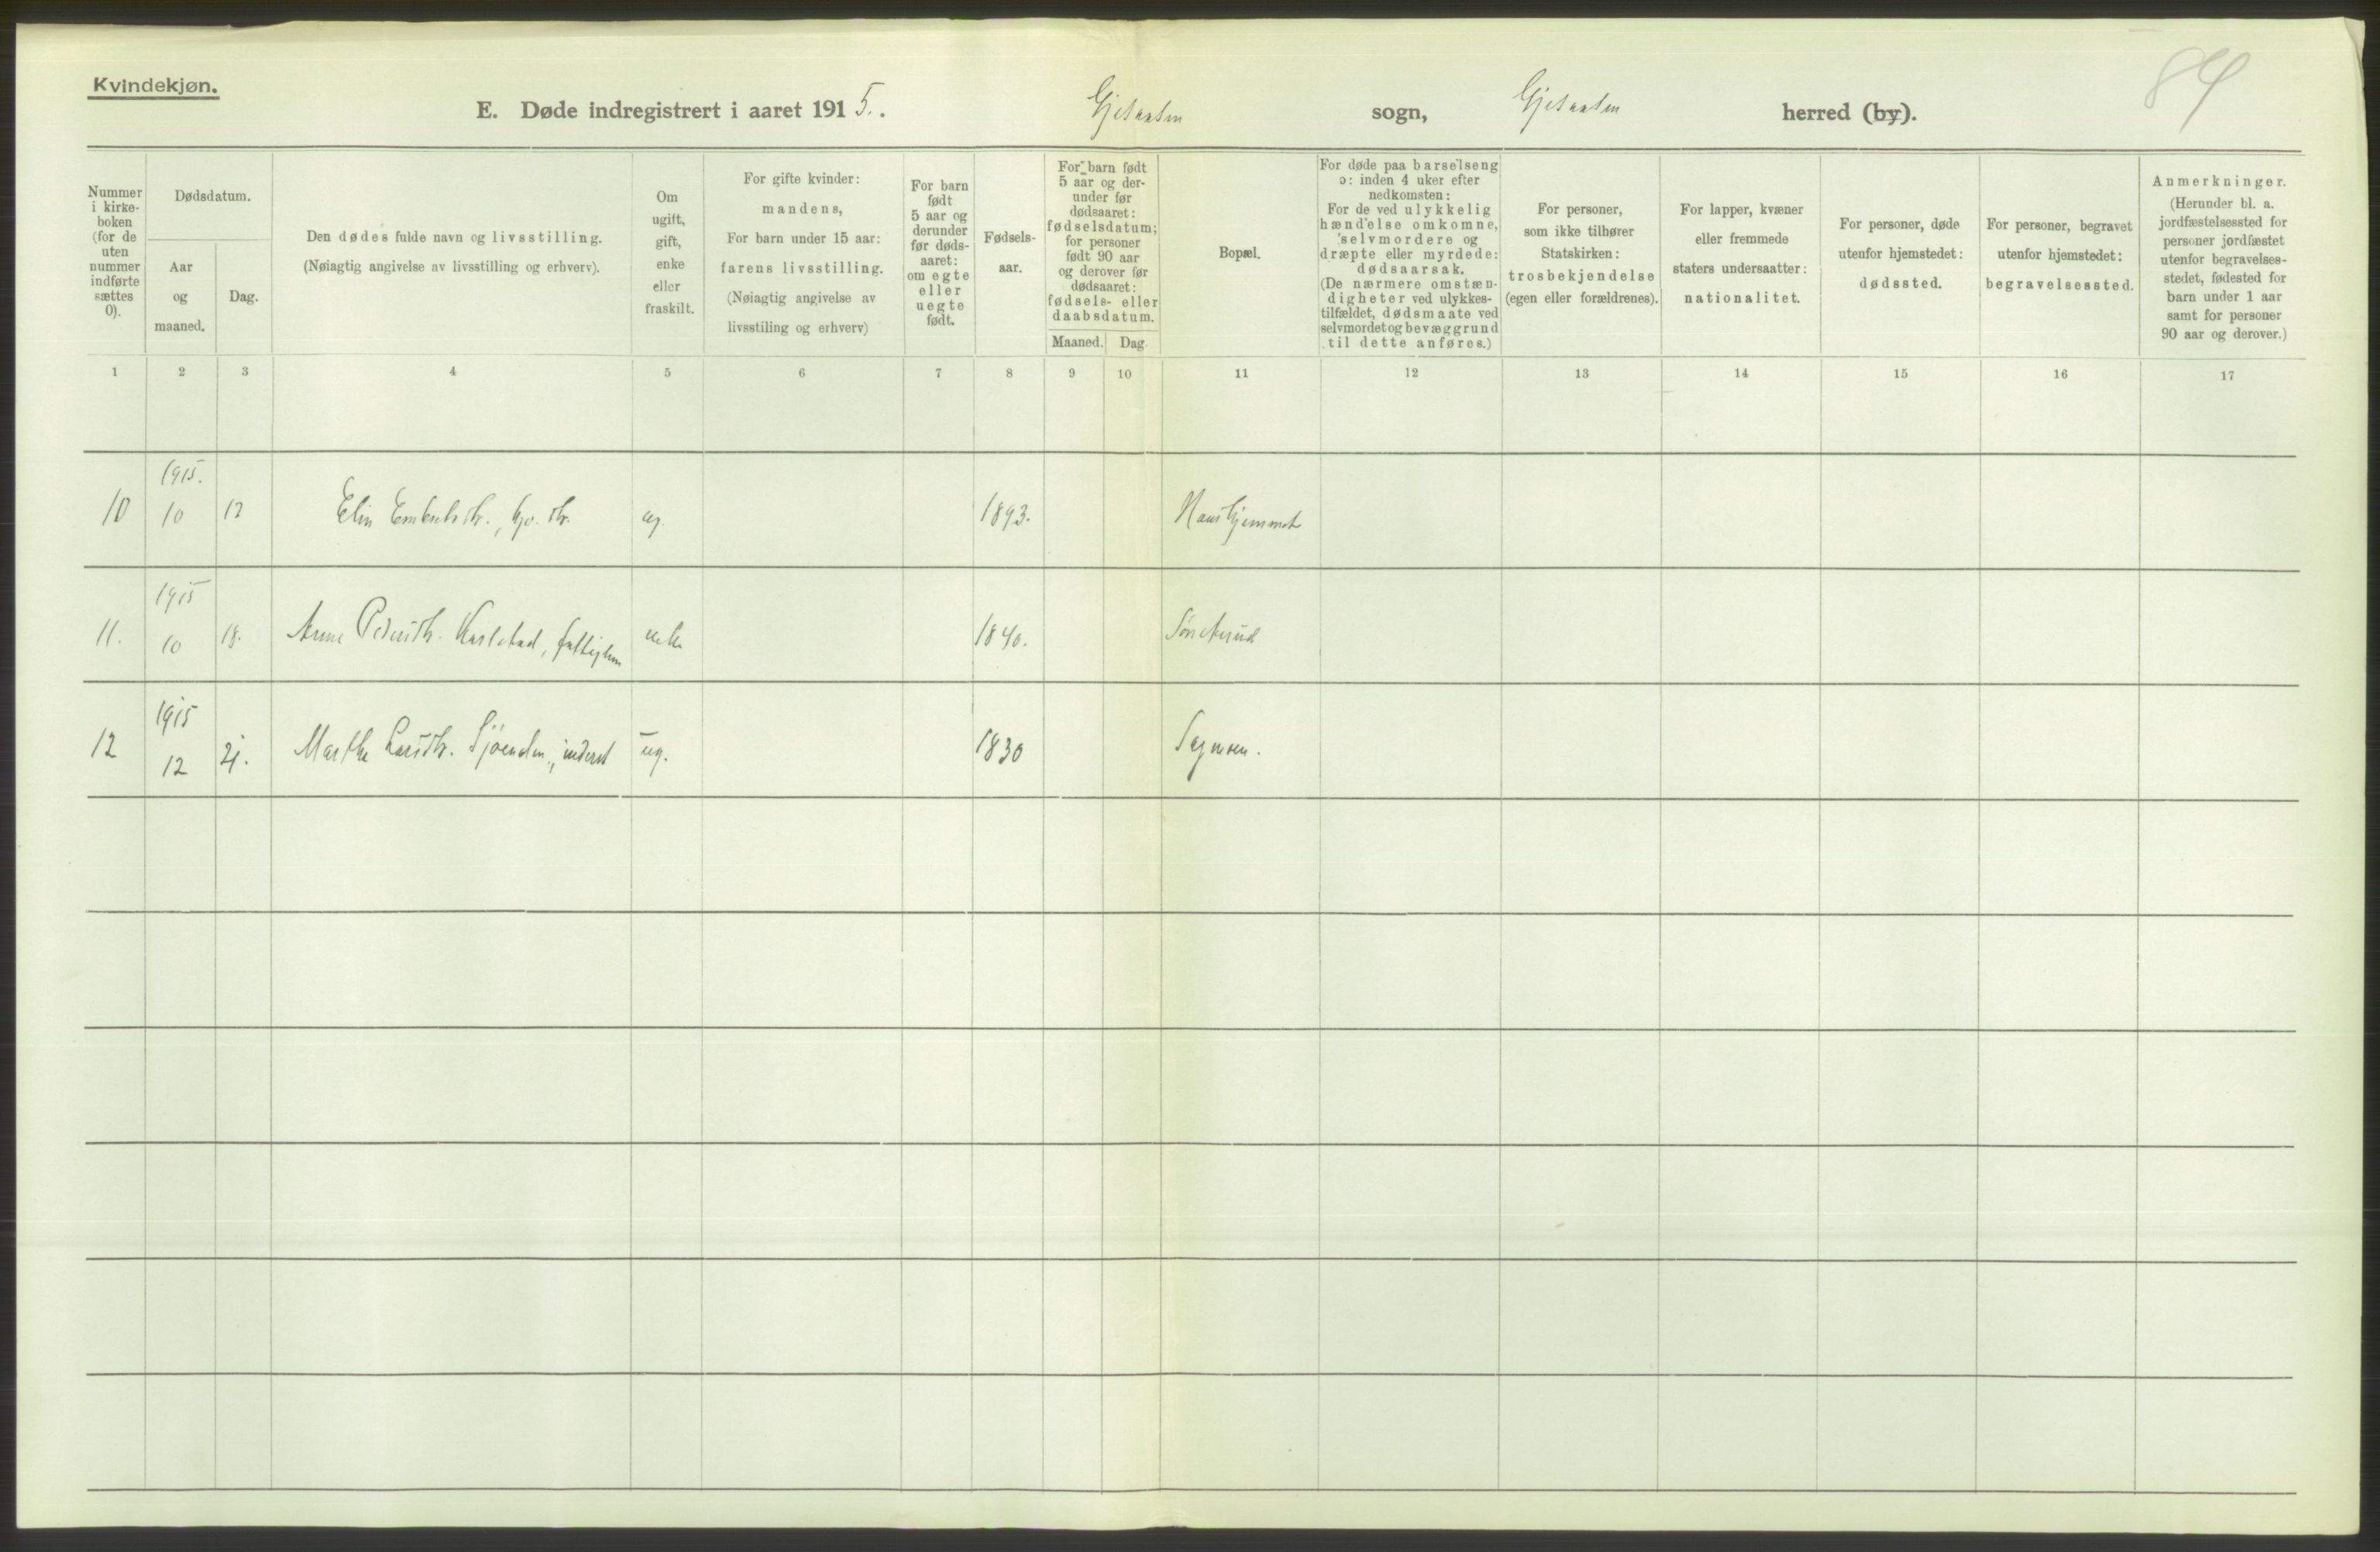 Kvindekjøn.
84
E. Døde indregistrert i aaret 1915. Gjesaasen sogn, Gjesaasen herred (by).
Nummer i kirke- boken (for de uten nummer indførte sættes 0).
Dødsdatum.
Aar og maaned.
Dag.
Den dødes fulde navn og livsstilling.
(Nøiagtig angivelse av livsstilling og erhverv).
Om ugift, gift, enke eller fraskilt.
For gifte kvinder: mandens,
For barn under 15 aar: farens livsstilling.
(Nøiagtig angivelse av livsstiling og erhverv)
For barn født 5 aar og derunder før døds- aaret: om egte eller uegte født.
Fødsels- aar.
For barn født 5 aar og der- under før dødsaaret: fødselsdatum; for personer født 90 aar og derover før dødsaaret: fødsels- eller daabsdatum.
Maaned. Dag.
Bopæl.
For døde paa barselseng ɔ: inden 4 uker efter nedkomsten:
For de ved ulykkelig hændelse omkomne, selvmordere og dræpte eller myrdede: dødsaarsak.
(De nærmere omstæn- digheter ved ulykkes- tilfældet, dødsmaate ved selvmordet og bevæggrund til dette anføres.)
For personer, som ikke tilhører Statskirken: trosbekjendelse (egen eller forældrenes).
For lapper, kvæner eller fremmede staters undersaatter: nationalitet.
For personer, døde utenfor hjemstedet: dødssted.
For personer, begravet utenfor hjemstedet: begravelsessted.
Anmerkninger.
(Herunder bl. a. jordfæstelsessted for personer jordfæstet utenfor begravelses- stedet, fødested for barn under 1 aar samt for personer 90 aar og derover.)
1 2 3 4 5 6 7 8 9 10 11 12 13 14 15 16 17
1915.
10 10 12 Elin ug. 1893.
1915
11. 10 18. Anne Pedersdtr. Karlstad, enke 1840. Sønsterud
1915
12 12 21. Marthe Larsdtr. inderst ug. 1830 Sagmoen.